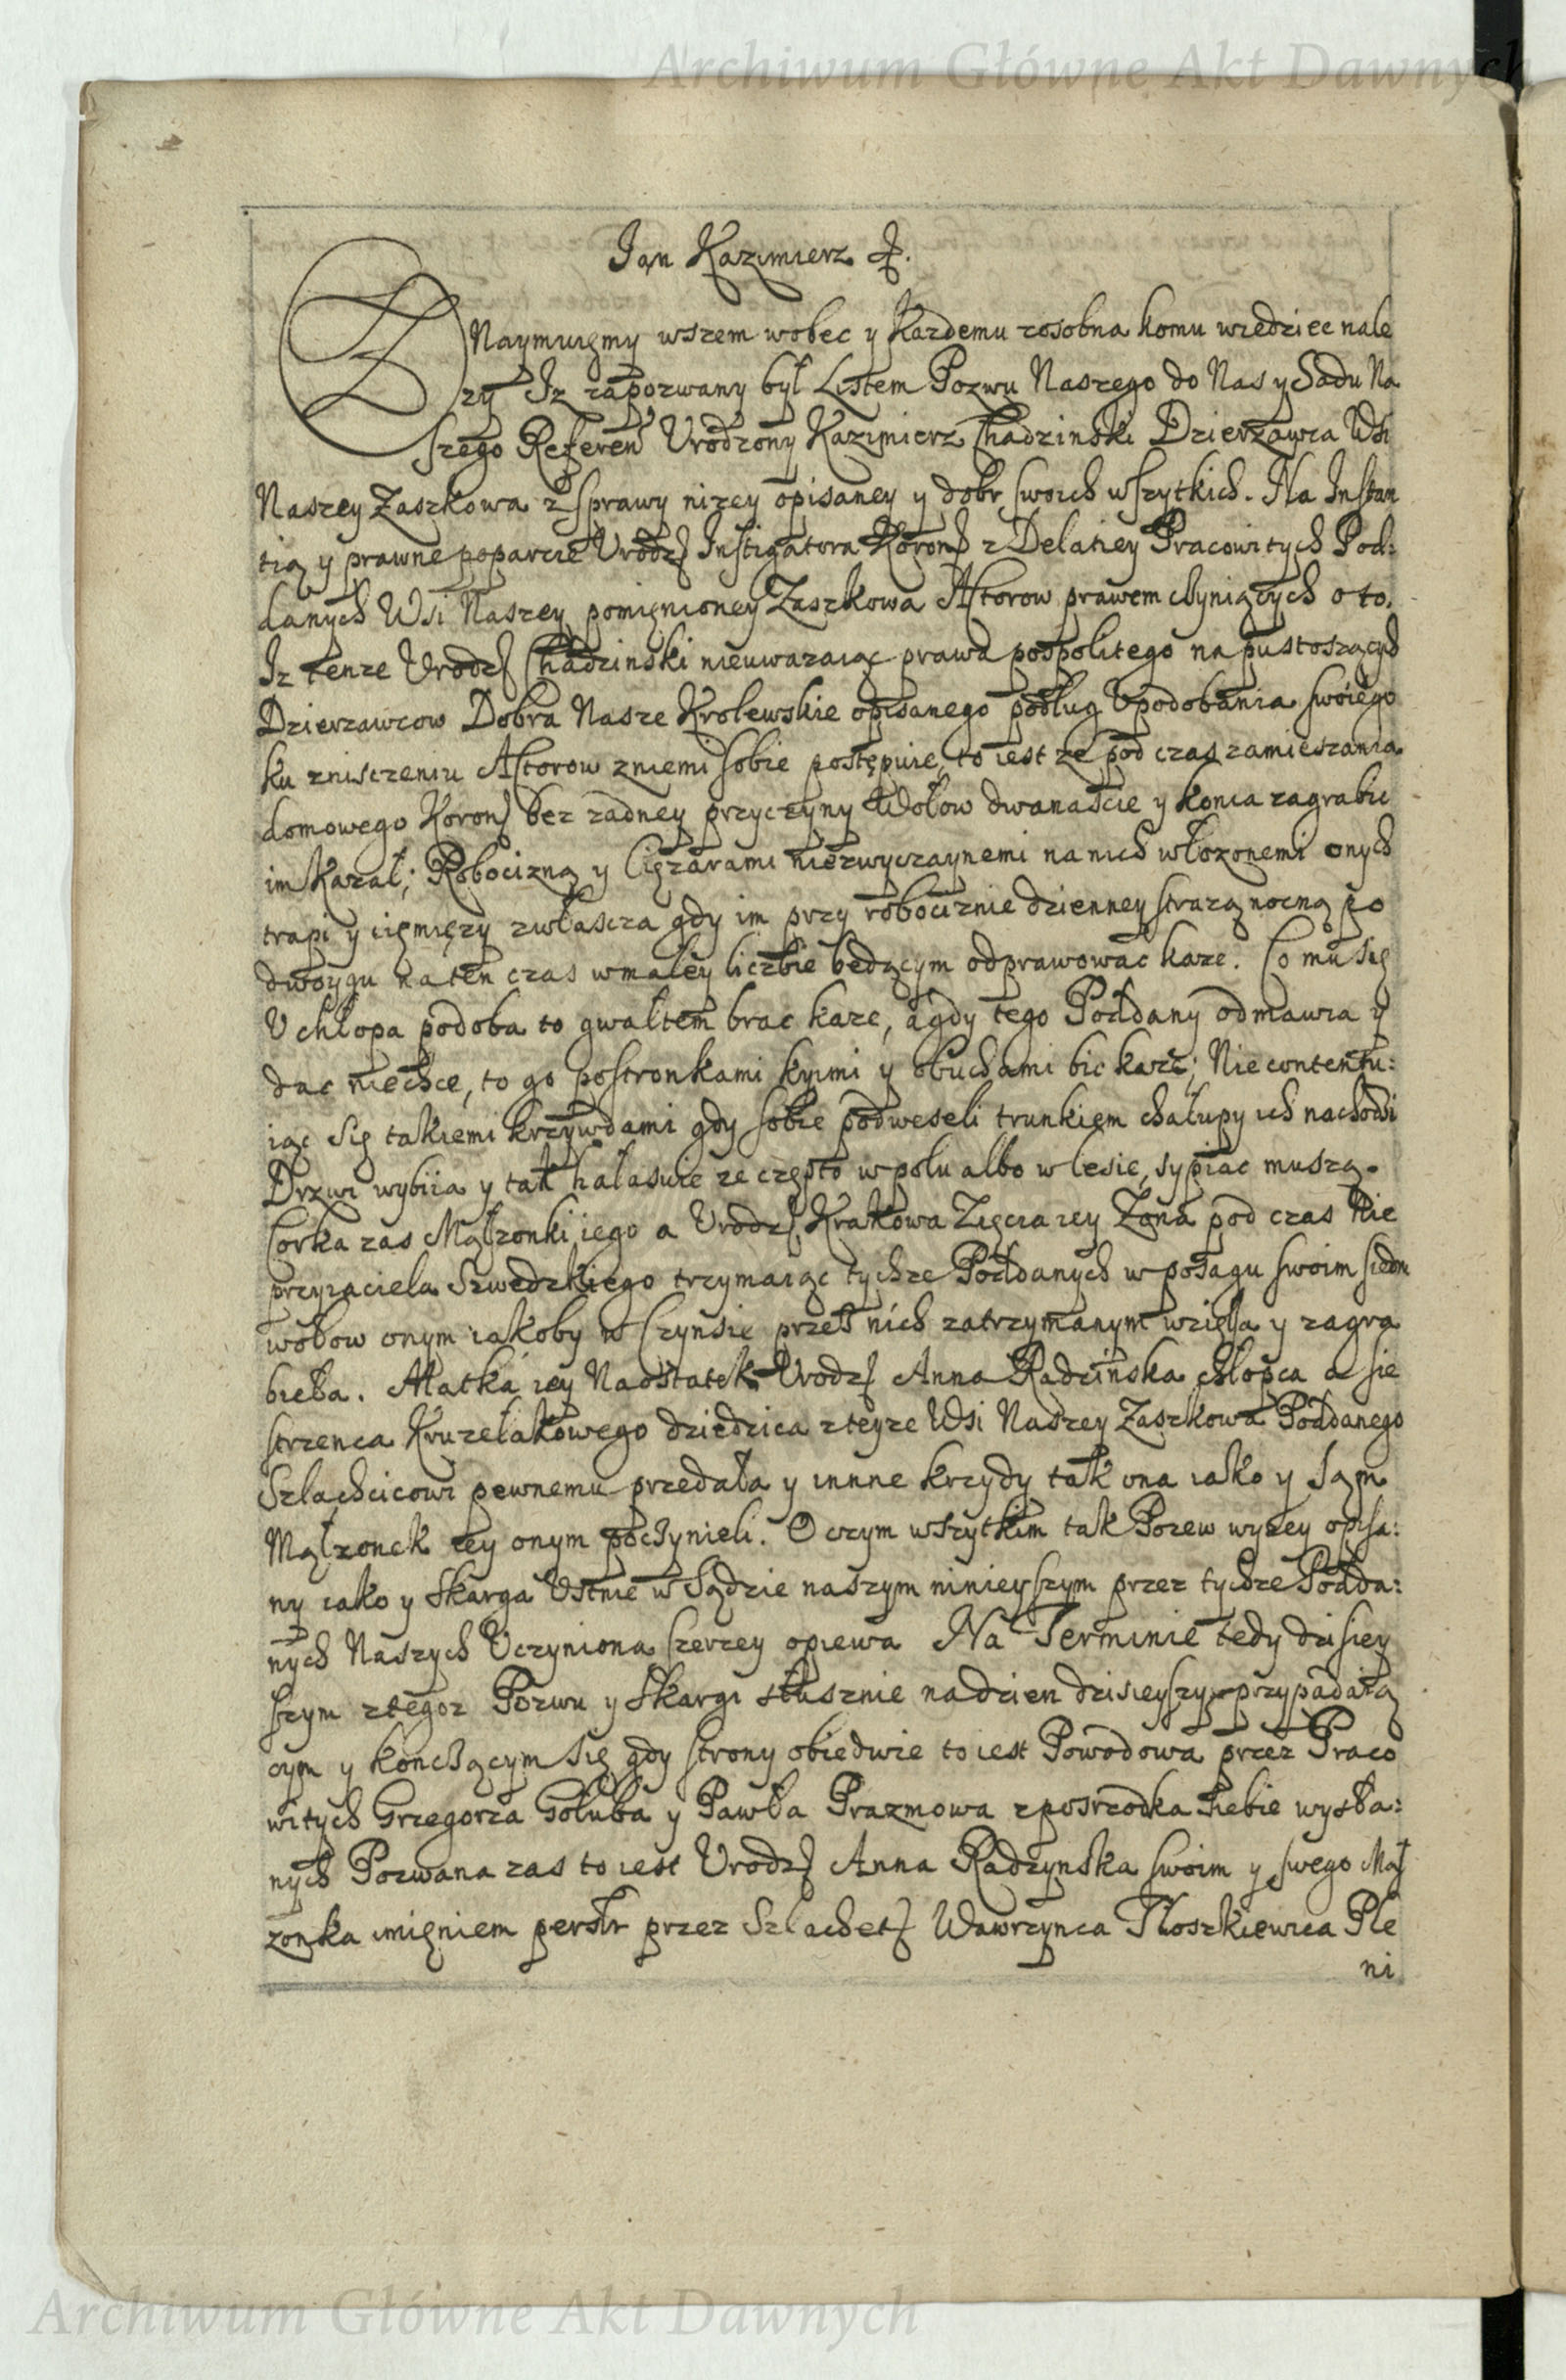 Archiwum Główne Akt Dawnych
Jan Kazimierz
Znaymuięmy wszem wobec y Kazdemu zosobna komu wiedziec nale
zy Iz zapozwany był Listem Pozwu Naszego do Nas y Sądu Na
szego Referen Vrodzony Kazimierz Chadzinski Dzierzawca Wsi
Naszey Zaszkowa z sprawy nizey opisaney y dobr swoich wszytkich. Na Instan
tią y prawne poparcie Vrodz Instigatora Koron z Delatiey Pracowitych Pod:
danych Wsi Naszey pomięnioney Zaszkowa Actorow prawem czyniących o to.
Iz tenze Vrodz Chadzinski nieuwazaiąc prawa pospolitego na pustoszących
Dzierzawcow Dobra Nasze Krolewskie opisanego podług Vpodobania swoiego
ku zniszczeniu Actorow zniemi sobie postępuie, to iest ze pod czas zamieszania
domowego Koron bez zadney przyczyny Wołow dwanascie y konia zagrabic
im kazał; Robocizną y Cięzarami niezwyczaynemi na nich włozonemi onych
trapi y ciemięzy zwłascza gdy im przy robociznie dzienney strazą nocną po
dwoygu na ten czas w małey liczbie będącym odprawowac kaze. Co mu się
V chłopa podoba to gwałtem brac kaze, a gdy tego Poddany odmawia y
dac niechce, to go postronkami kyimi y obuchami bic kaze; Nie contentu:
iąc się takiemi krzywdami gdy sobie podweseli trunkiem chałupy ich nachodzi
Drzwi wybiia y tak hałasuie ze często w polu albo w lesie, sypiac muszą.
Corka zas Małzonki iego a Vrodz Krakowa Zięcia iey Zona pod czas Nie
przyiaciela Szwedzkiego trzymaiąc tychze Poddanych w posagu swoim siedm
wołow onym iakoby w Czynsie przes nich zatrzymanym wzięła y zagra
bieła. Matka iey Naostatek Vrodz Anna Radzinska chłopca a sie
strzenca Kruzelakowego dziedzica z teyze Wsi Naszey Zaszkowa Poddanego
Szlachcicowi pewnemu przedała y innne krzydy tak ona iako y sąm
Małzonek iey onym poczynieli. O czym wszytkim tak Pozew wyzey opisa:
ny iako y Skarga Vstnie w Sądzie naszym ninieyszym przez tychze Podda:
nych Naszych Vczyniona szerzey opiewa Na Terminie tedy dzisiey
szym z tegoz Pozwu y Skargi słusznie na dzien dzisieyszy przypadaią
cym y konczącym się gdy strony obiedwie to iest Powodowa przez Praco
witych Grzegorza Gołuba y Pawła Prazmowa z posrzodka siebie wysła:
nych Pozwana zas to iest Vrodz Anna Radzynska swoim y swego Mał
zonka imięniem przez Szlachet Wawrzynca Ple
ni
Archiwum Główne Akt Dawnych